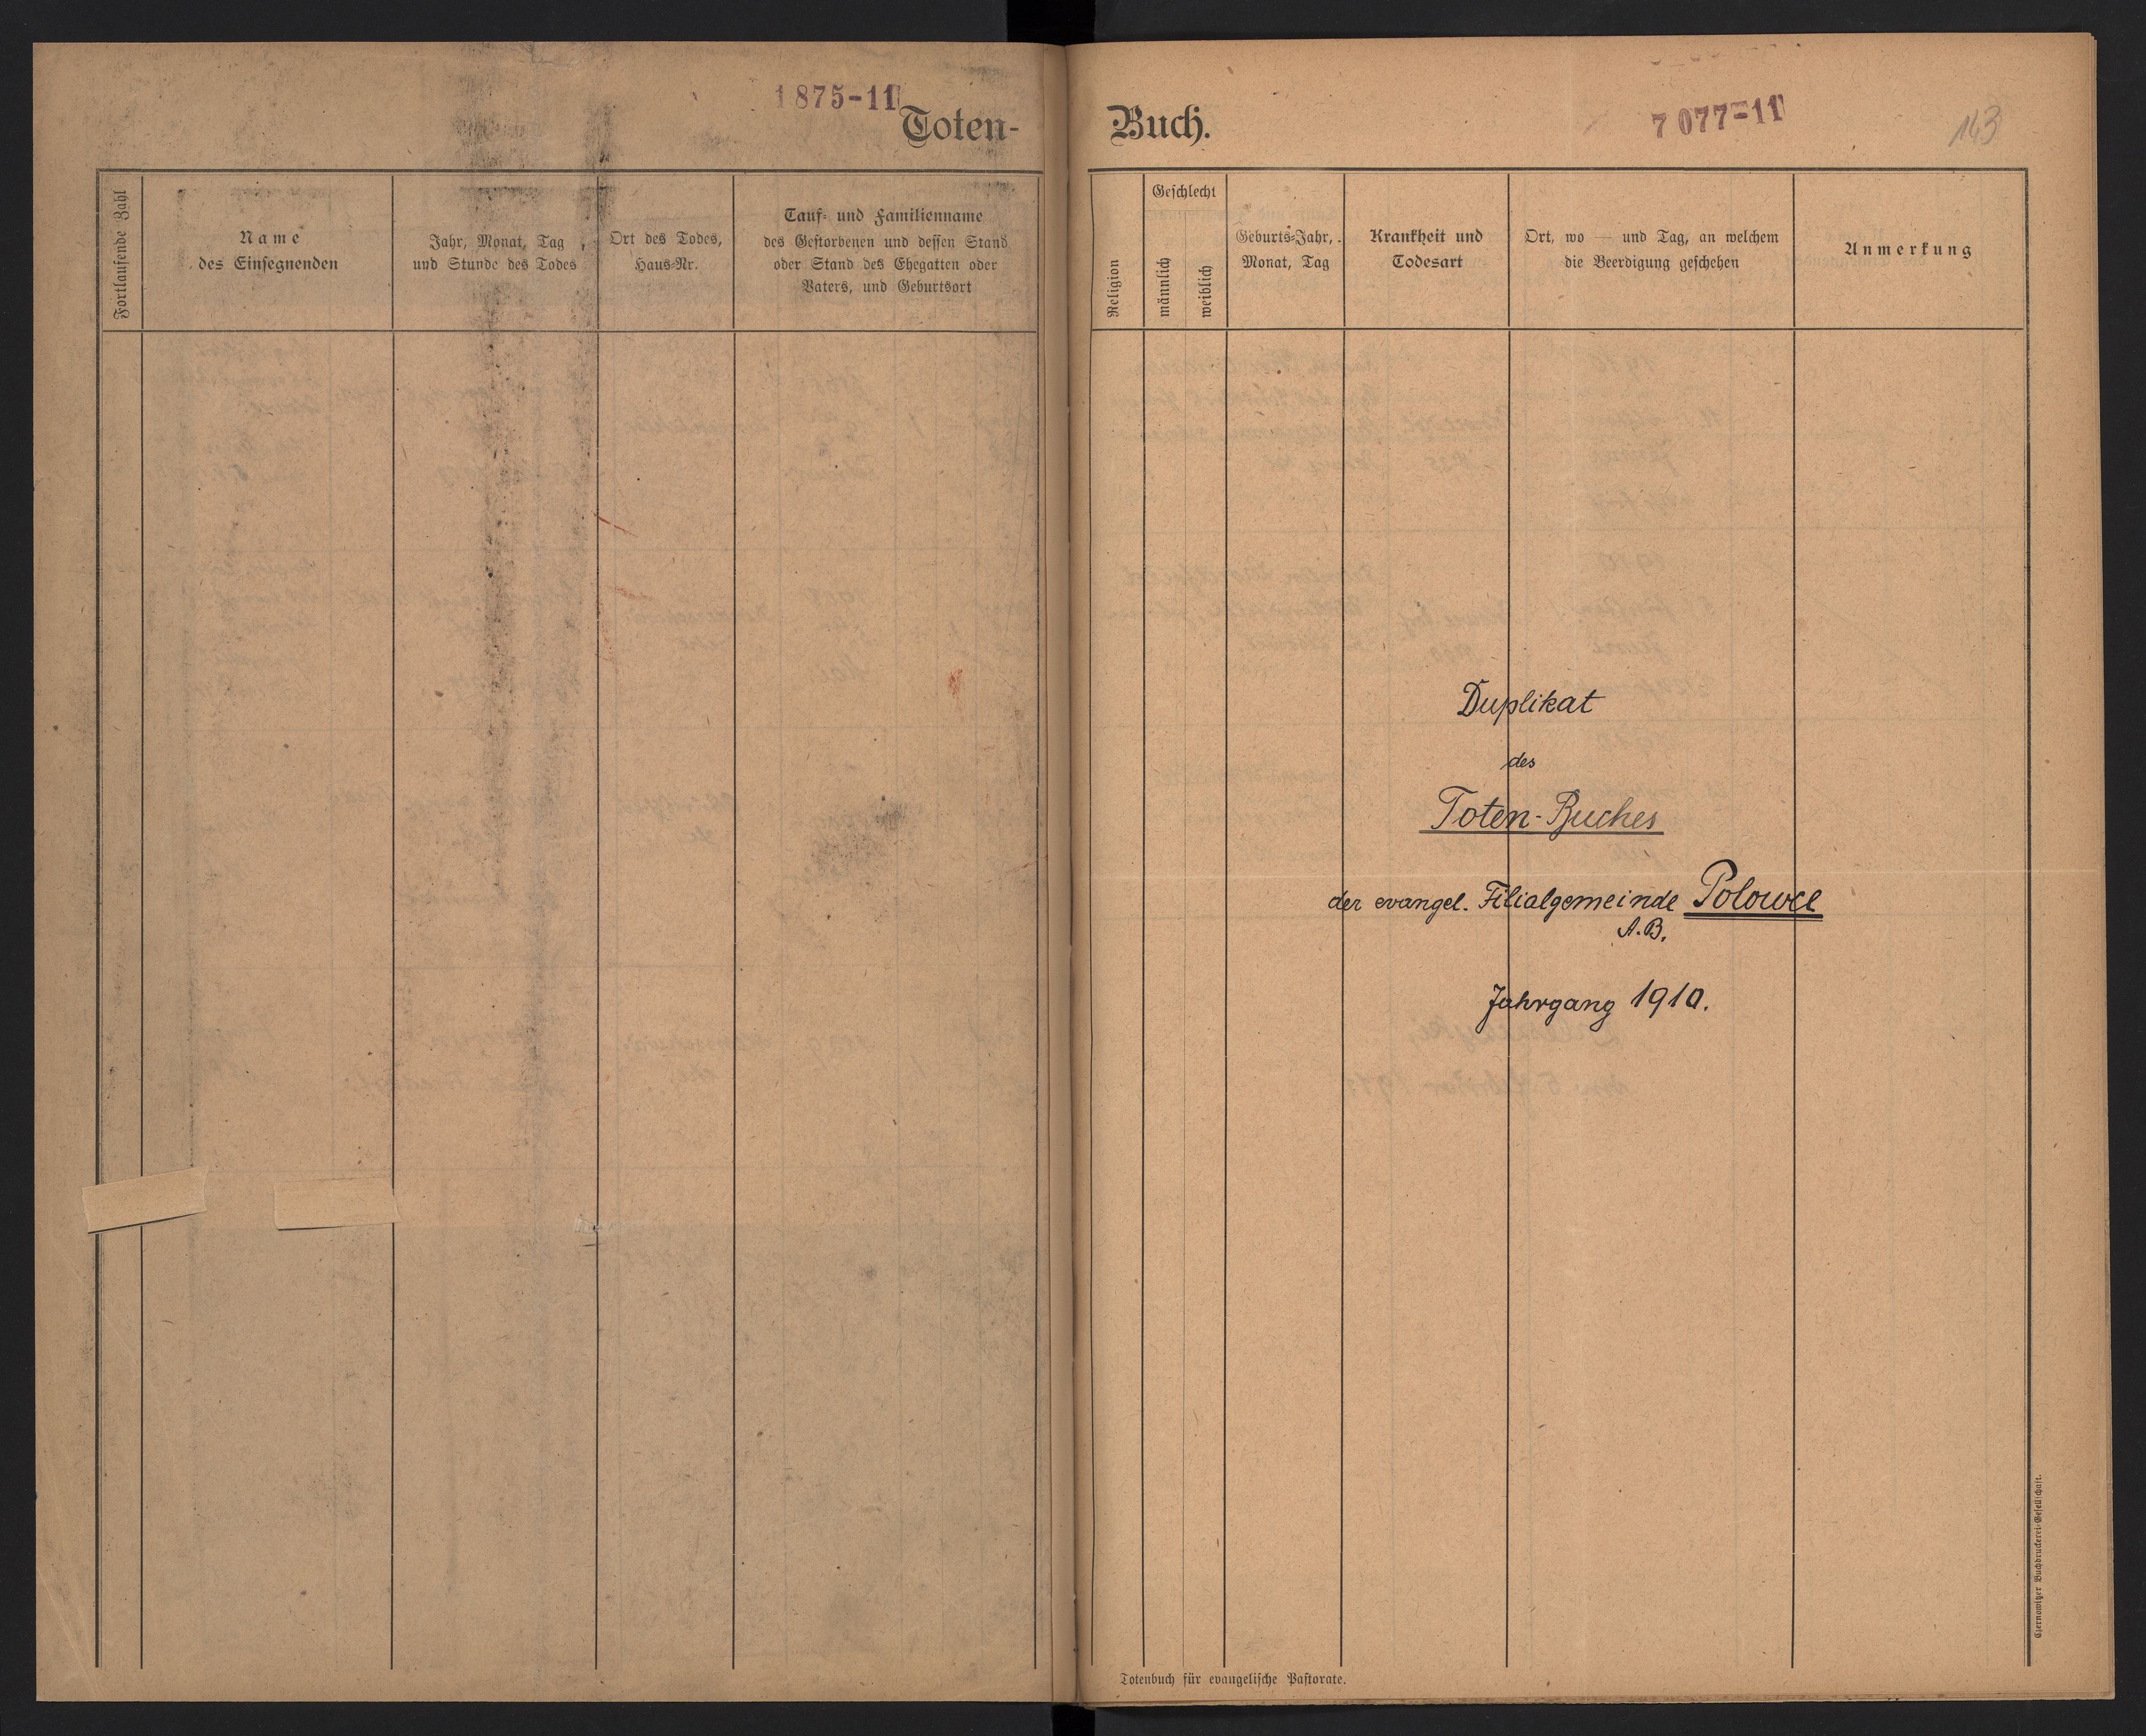 1875-11
Toten-
Fortlaufende Zahl
Name
des Einsegnenden
Jahr, Monat, Tag
und Stunde des Todes
Ort des Todes,
Haus-Nr.
Tauf- und Familienname
des Gestorbenen und dessen Stand
oder Stand des Ehegatten oder
Vaters, und Geburtsort
Buch.
7077-11
143
Religion
Geschlecht
männlich
weiblich
Geburts-Jahr,
Monat, Tag
Krankheit und
Todesart
Ort, wo — und Tag, an welchem
die Beerdigung geschehen
Anmerkung
Duplikat
des
Toten-Buches
der evangel. Filialgemeinde Polowce
A.B.
Jahrgang 1910.
Totenbuch für evangelische Pastorate.
Czernowitzer Buchdruckerei-Gesellschaft.